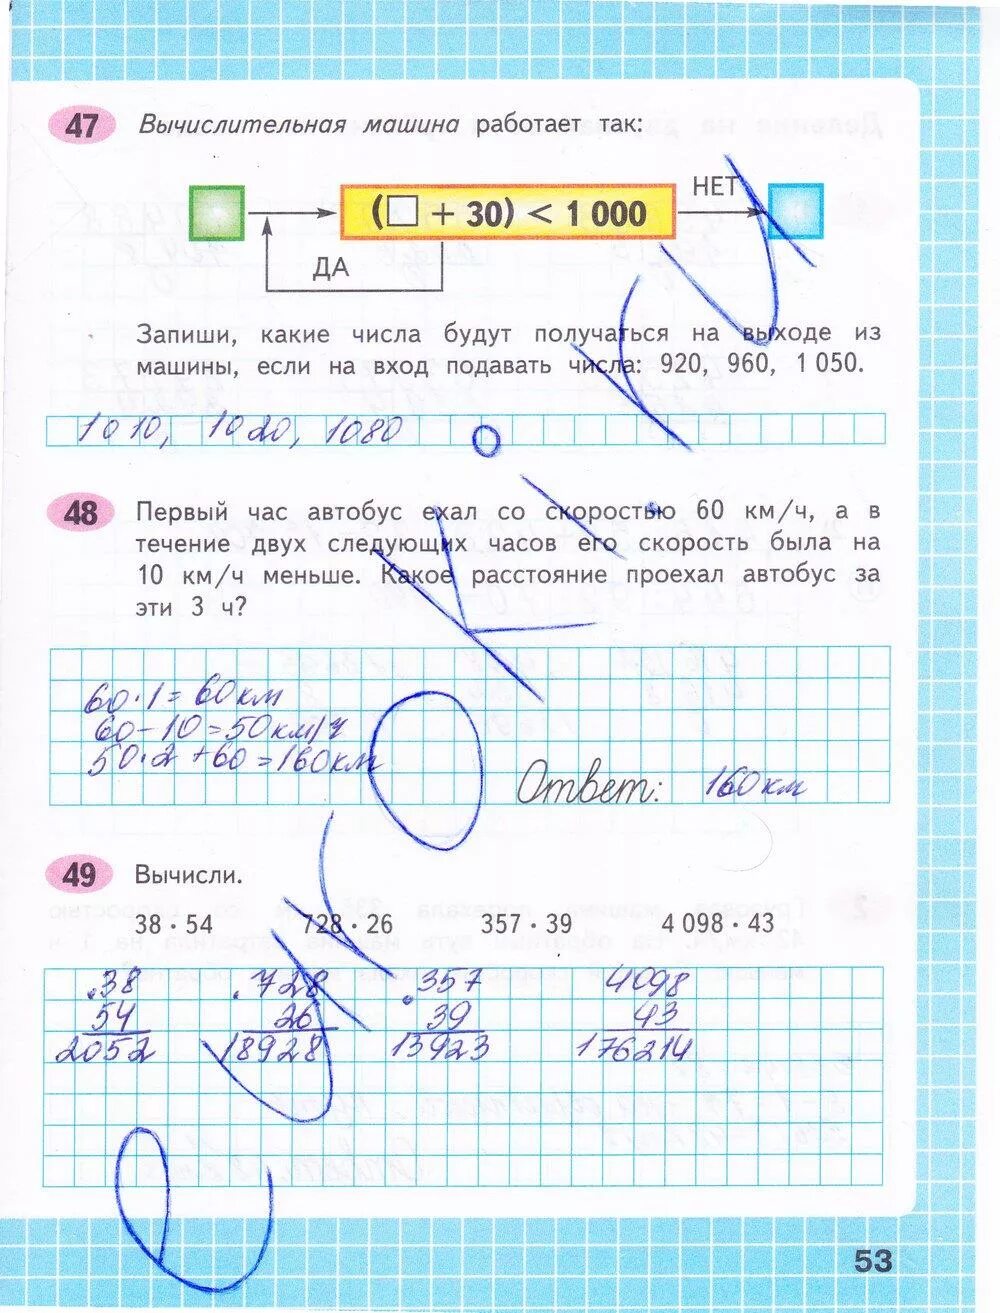 47 Вычислительная машина работает так:
(□ + 30) < 1 000
НЕТ
ДА
Запиши, какие числа будут получаться на выходе из
машины, если на вход подавать числа: 920, 960, 1 050.
1010, 1020, 1080
48 Первый час автобус ехал со скоростью 60 км/ч, а в
течение двух следующих часов его скорость была на
10 км/ч меньше. Какое расстояние проехал автобус за
эти 3 ч?
60·1= 60км
60-10=50км/ч
50·2+60=160км
Ответ: 160км
49 Вычисли.
38·54 728·26 357·39 4 098·43
.38 .728 .357 4098
54 26 39 43
2052 18928 13923 176214
53